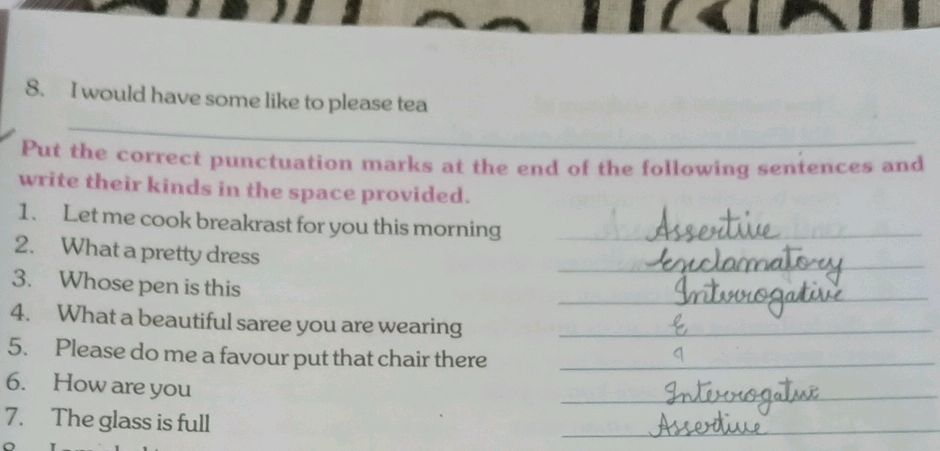 8. I would have some like to please tea
Put the correct punctuation marks at the end of the following sentences and
write their kinds in the space provided.
1. Let me cook breakrast for you this morning Assertive
2. What a pretty dress Exclamatory
3. Whose pen is this Interrogative
4. What a beautiful saree you are wearing E
5. Please do me a favour put that chair there
6. How are you Interrogative
7. The glass is full Assertive